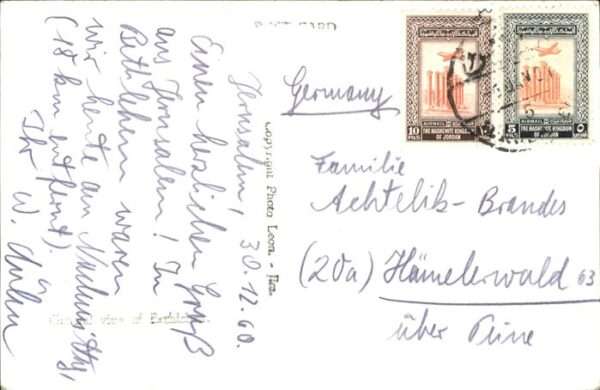 POST CARD
Jerusalem, 30.12.60.
Einen herzlichen Gruß
aus Jerusalem! In
Bethlehem waren
wir heute am Nachmittag,
(18 km entfernt).
Ihr W.
Copyright Photo Leon -
General view of Bethlehem
Germany
Familie
Achtelik-Brandes
(20a) Hämelerwald 63
über Peine
10
FILS
AIRMAIL
THE HASHEMITE KINGDOM
OF JORDAN
5
FILS
AIRMAIL
THE HASHEMITE KINGDOM
OF JORDAN